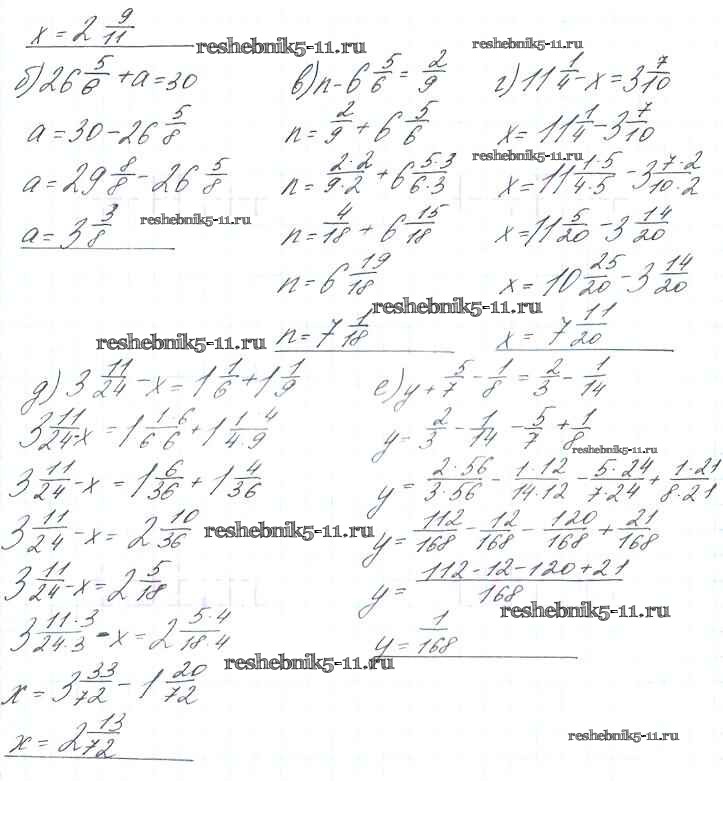 x = 2 9/11
reshebnik5-11.ru
reshebnik5-11.ru
б) 26 5/8 + a = 30
a = 30 - 26 5/8
a = 29 8/8 - 26 5/8
a = 3 3/8
reshebnik5-11.ru
в) n - 6 5/6 = 2/9
n = 2/9 + 6 5/6
n = 2·2/9·2 + 6 5·3/6·3
n = 4/18 + 6 15/18
n = 6 19/18
n = 7 1/18
г) 11 1/4 - x = 3 7/10
x = 11 1/4 - 3 7/10
reshebnik5-11.ru
x = 11 1·5/4·5 - 3 7·2/10·2
x = 11 5/20 - 3 14/20
x = 10 25/20 - 3 14/20
reshebnik5-11.ru
x = 7 11/20
reshebnik5-11.ru
д) 3 11/24 - x = 1 1/6 + 1 1/9
3 11/24 - x = 1 1·6/6·6 + 1 1·4/4·9
3 11/24 - x = 1 6/36 + 1 4/36
3 11/24 - x = 2 10/36
reshebnik5-11.ru
3 11/24 - x = 2 5/18
3 11·3/24·3 - x = 2 5·4/18·4
reshebnik5-11.ru
x = 3 33/72 - 1 20/72
x = 2 13/72
е) y + 5/7 - 1/8 = 2/3 - 1/14
y = 2/3 - 1/14 - 5/7 + 1/8
reshebnik5-11.ru
y = 2·56/3·56 - 1·12/14·12 - 5·24/7·24 + 1·21/8·21
y = 112/168 - 12/168 - 120/168 + 21/168
y = 112-12-120+21/168
reshebnik5-11.ru
y = 1/168
reshebnik5-11.ru